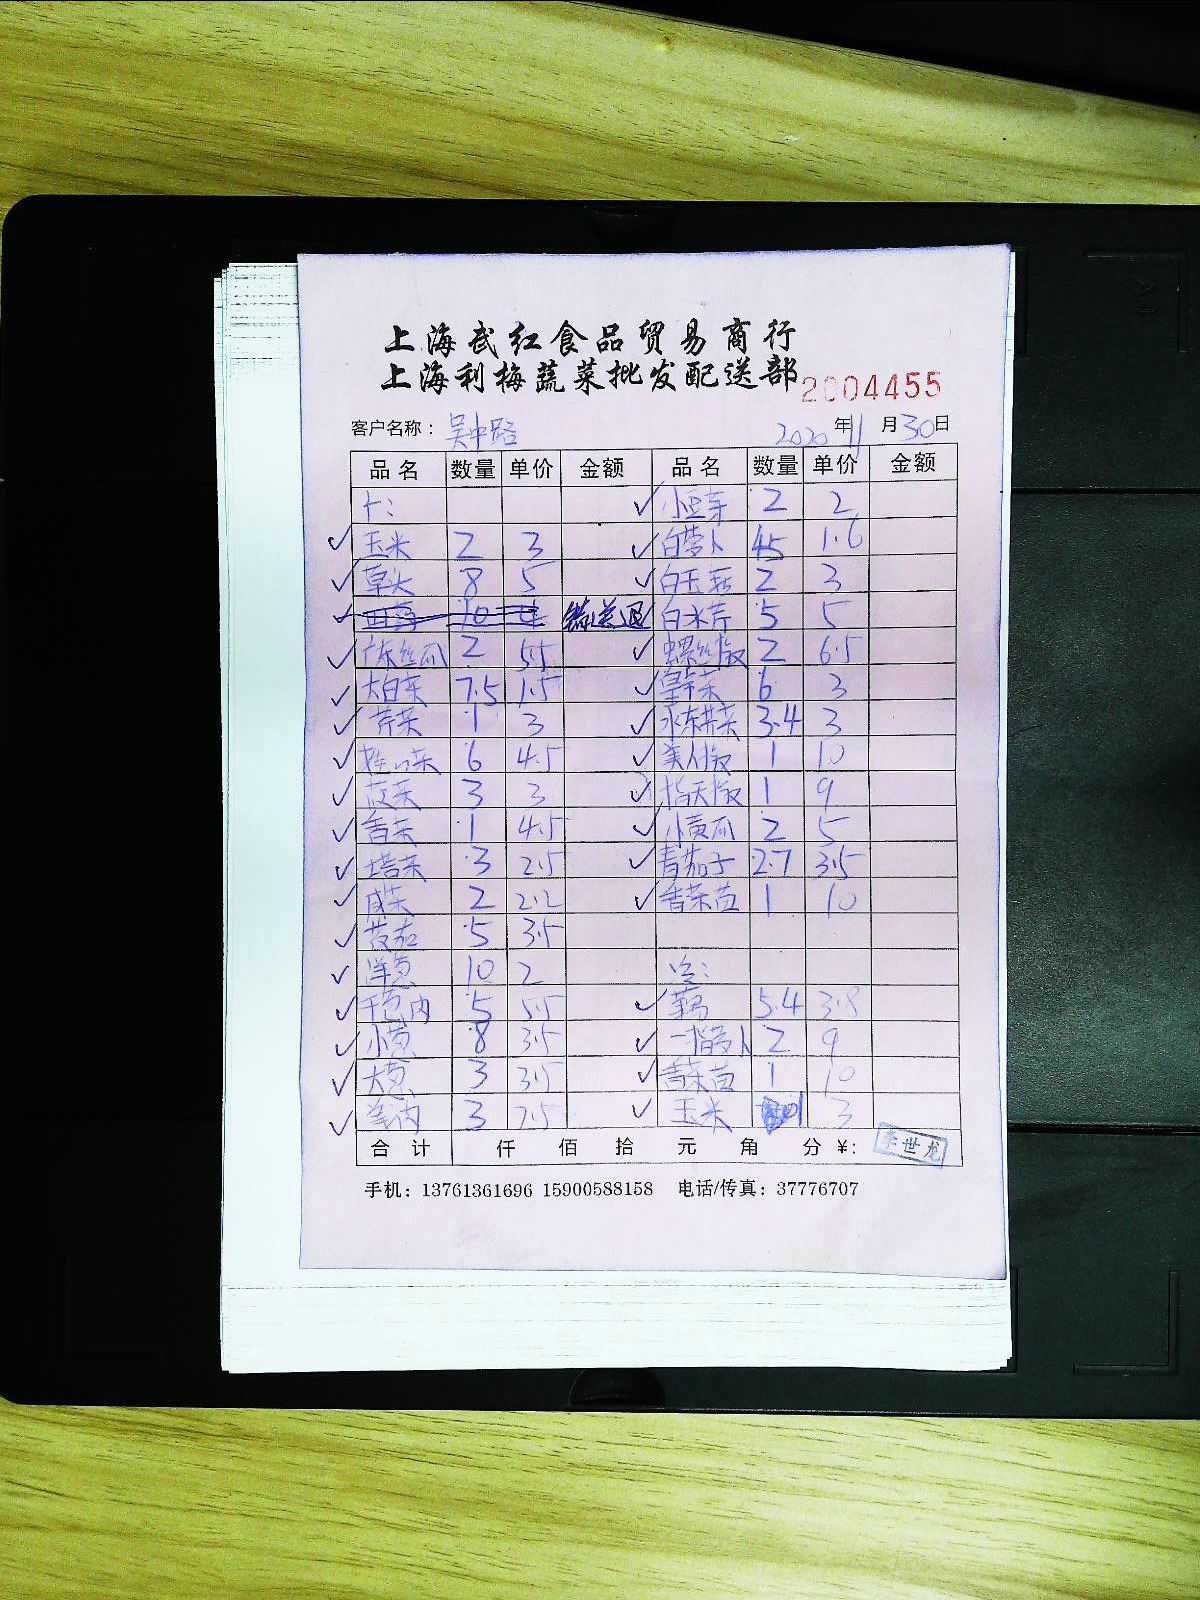 上海武红食品贸易商行
上海利梅蔬菜批发配送部
2004455
客户名称：吴中路 2020年11月30日
品名 数量 单价 金额 品名 数量 单价 金额
小豆芽 2 2
玉米 2 3 白萝卜 45 1.6
草头 8 5 白玉菇 2 3
10 4 白水芹 5 5
广东丝瓜 2 5.5 螺丝椒 2 6.5
大白菜 7.5 1.5 6 3
芹菜 1 3 水东芥菜 3.4 3
6 4.5 美人椒 1 10
3 3 指天椒 1 9
香菜 1 4.5 小黄瓜 2 5
塔菜 3 2.5 青茄子 2.7 3.5
咸菜 2 2.2 香菜苗 1 10
5 3.5
洋葱 10 2 冷：
5 5.5 藕 5.4 3.8
小葱 8 3.5 一指萝卜 2 9
大葱 3 3.5 香菜苗 1 10
3 7.5 玉米 3
合计 仟 佰 拾 元 角 分 ¥：
李世龙
手机：13761361696 15900588158 电话/传真：37776707